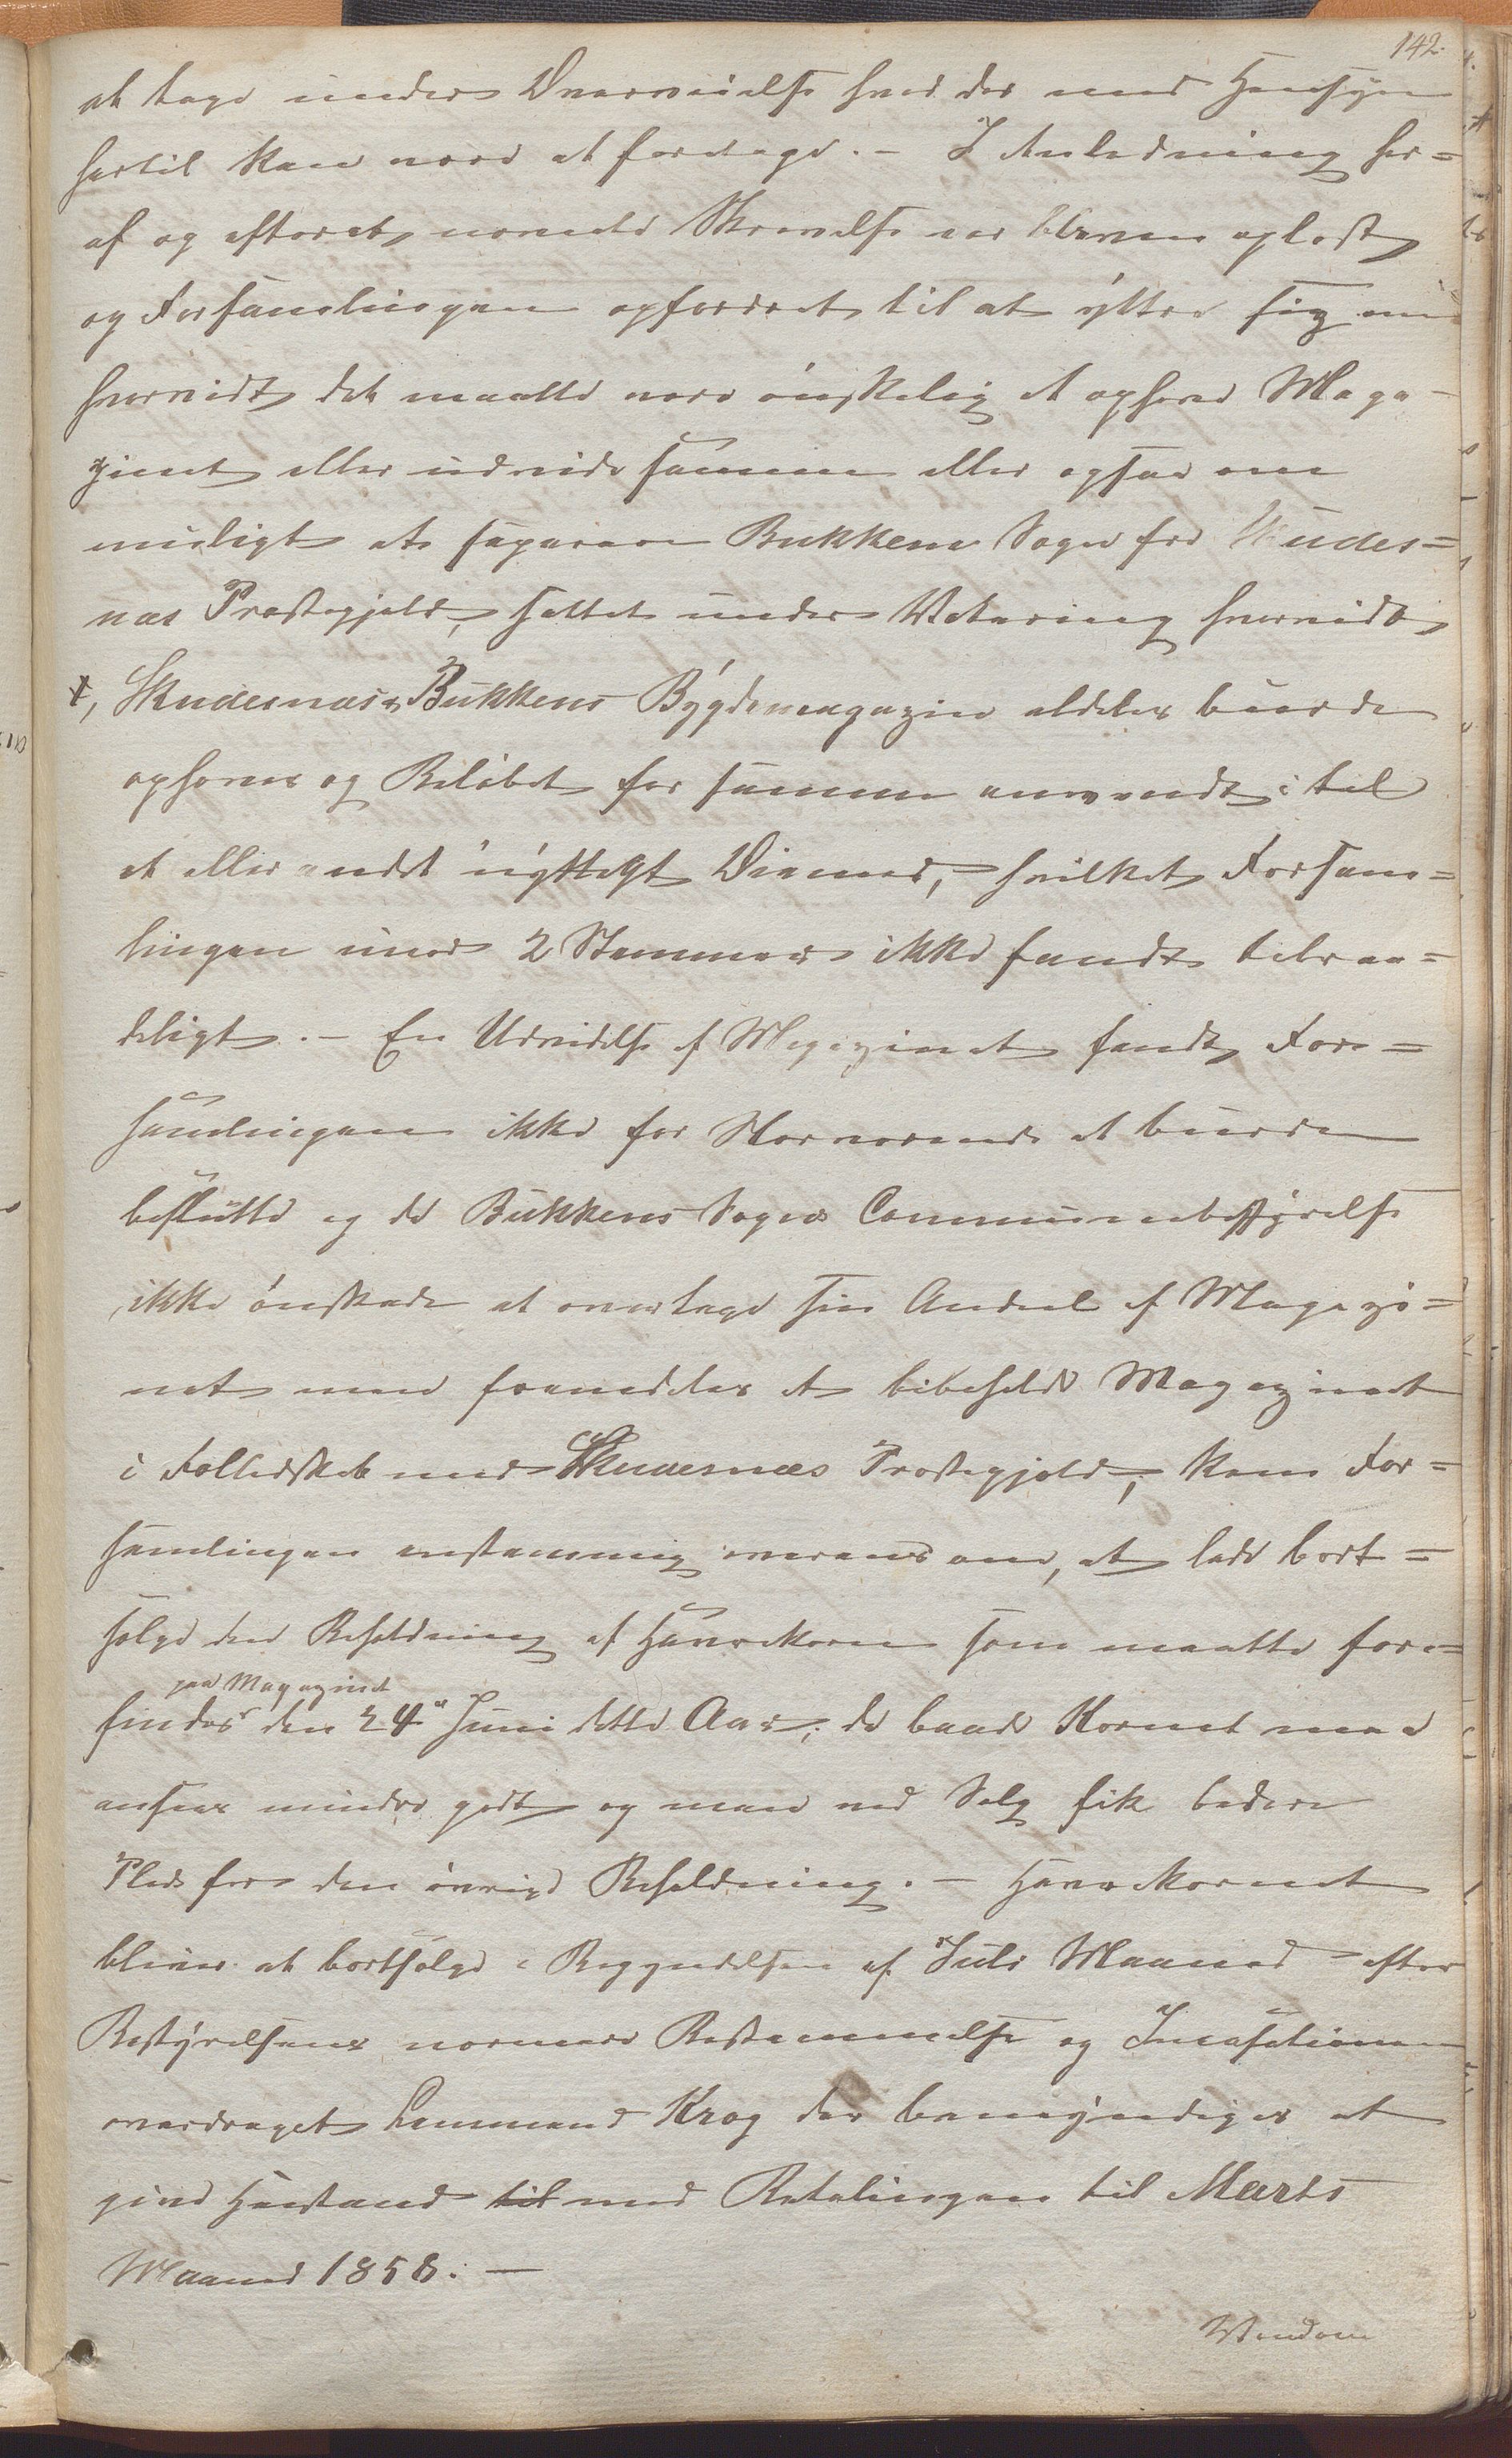 142.
at tage under Overveielse hvad der med Hensyn
hertil kan være at foretage. – I Anledning her=
af og efterat nævnte Skrivelse var bleven oplæst
og Forsamlingen opfordret til at yttre sig om
hvorvidt det maatte være ønskelig at ophæve Maga-
zinet eller udvide samme eller ogsaa om
muligt at separere Bukkens Sogn fra Skudes=
næs Præstegjeld, sattes under Votering hvorvidt
+, Skudesnæs & Bukkens Bygdemagazin aldeles burde
ophæves og Beløbet for samme anvendt til
et eller andet nyttigt Øiemed, hvilket Forsam=
lingen imod 2 Stemmer ikke fandt tilraa=
deligt. – En Udvidelse af Magazinet fandt For=
samlingen ikke for Nærværende at burde
beslutte og da Bukkens Sogns Communebestyrelse
ikke ønskede at overtage sin Andeel af Magazi=
net men fremdeles at bibeholde Magazinet
i Fælledskab med Skudesnæs Præstegjeld, kom For=
samlingen enstemmig overens om, at lade bort=
sælge den Beholdning af Havrekorn som maatte fore=
paa Magazinet
findes den 24de Juni dette Aar, da baade Kornet maa
ansees mindre godt og man ved Salg fik bedre
Plads for den øvrige Beholdning. – Havrekornet
bliver at bortsælge i Begyndelsen af Juli Maaned efter
Bestyrelsens nærmere Bestemmelse og Incasationen
overdraget Lensmand Krog der bemyndiges at
give Henstand til med Betalingen til Marts
Maaned 1858. –